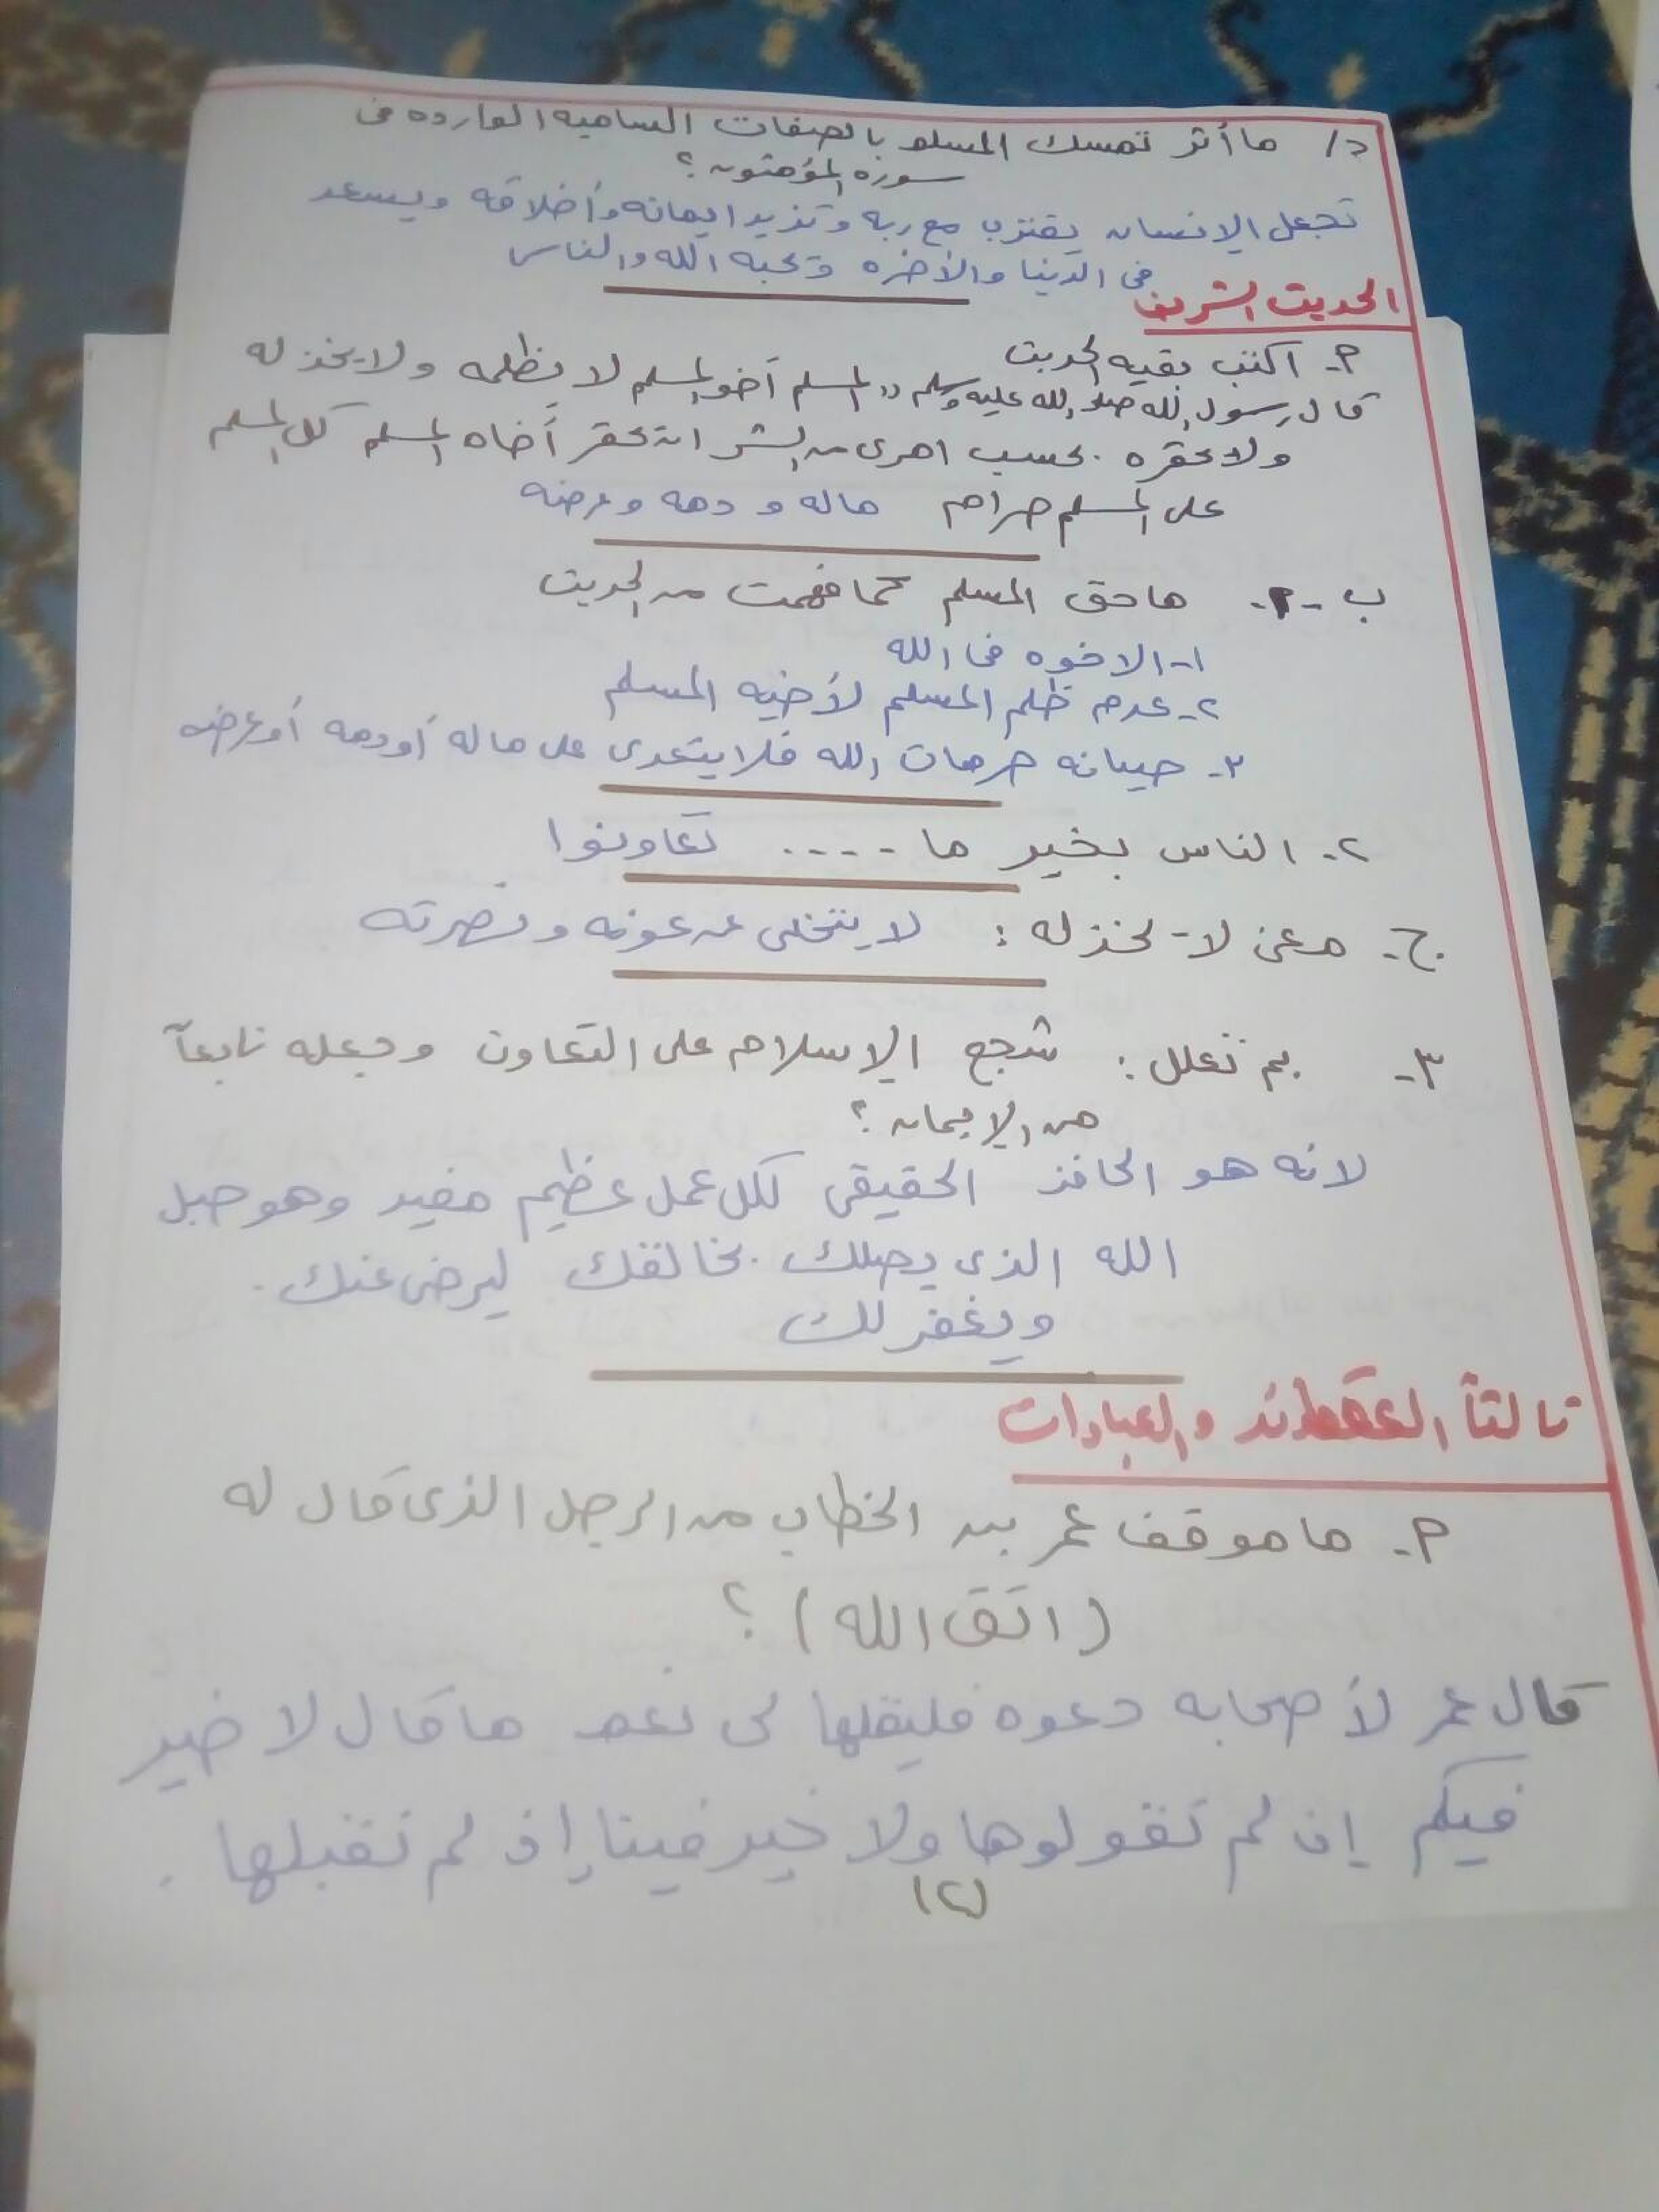 د/ ما أثر تمسك المسلم بالصفات الساميه الوارده فى
سوره المؤمنون؟
تجعل الإنسان يقترب مع ربه وتزيد ايمانه وأخلاقه ويسعد
فى الدنيا والأخره وتحبه الله والناس
الحديث الشريف
م- اكتب بقيه الحديث
قال رسول الله صلى الله عليه وسلم "المسلم أخو المسلم لا يظلمه ولا يخذله
ولا يحقره بحسب امرئ من الشر ان يحقر أخاه المسلم كل المسلم
على المسلم حرام ماله ودمه وعرضه
ب -م- ما حق المسلم كما فهمت من الحديث
١- الاخوه فى الله
٢- عدم ظلم المسلم لأخيه المسلم
٣- صيانه حرمات الله فلا يتعدى على ماله أودمه أوعرضه
٢- الناس بخير ما .... تعاونوا
ج- معنى لا تخذله : لا يتخلى عن عونه ونصرته
٣- بم تعلل : شجع الإسلام على التعاون وجعله نابعاً
من الإيمان؟
لانه هو الحافز الحقيقى لكل عمل عظيم مفيد وهو حبل
الله الذى يصلك بخالقك ليرضى عنك.
ويغفر لك
ثالثاً العقائد والعبادات
م- ما موقف عمر بن الخطاب من الرجل الذى قال له
(اتق الله)؟
قال عمر لأصحابه دعوه فليقلها لى نعم ما قال لا خير
فيكم إن لم تقولوها ولا خير فينا إن لم نقبلها.
(٢)